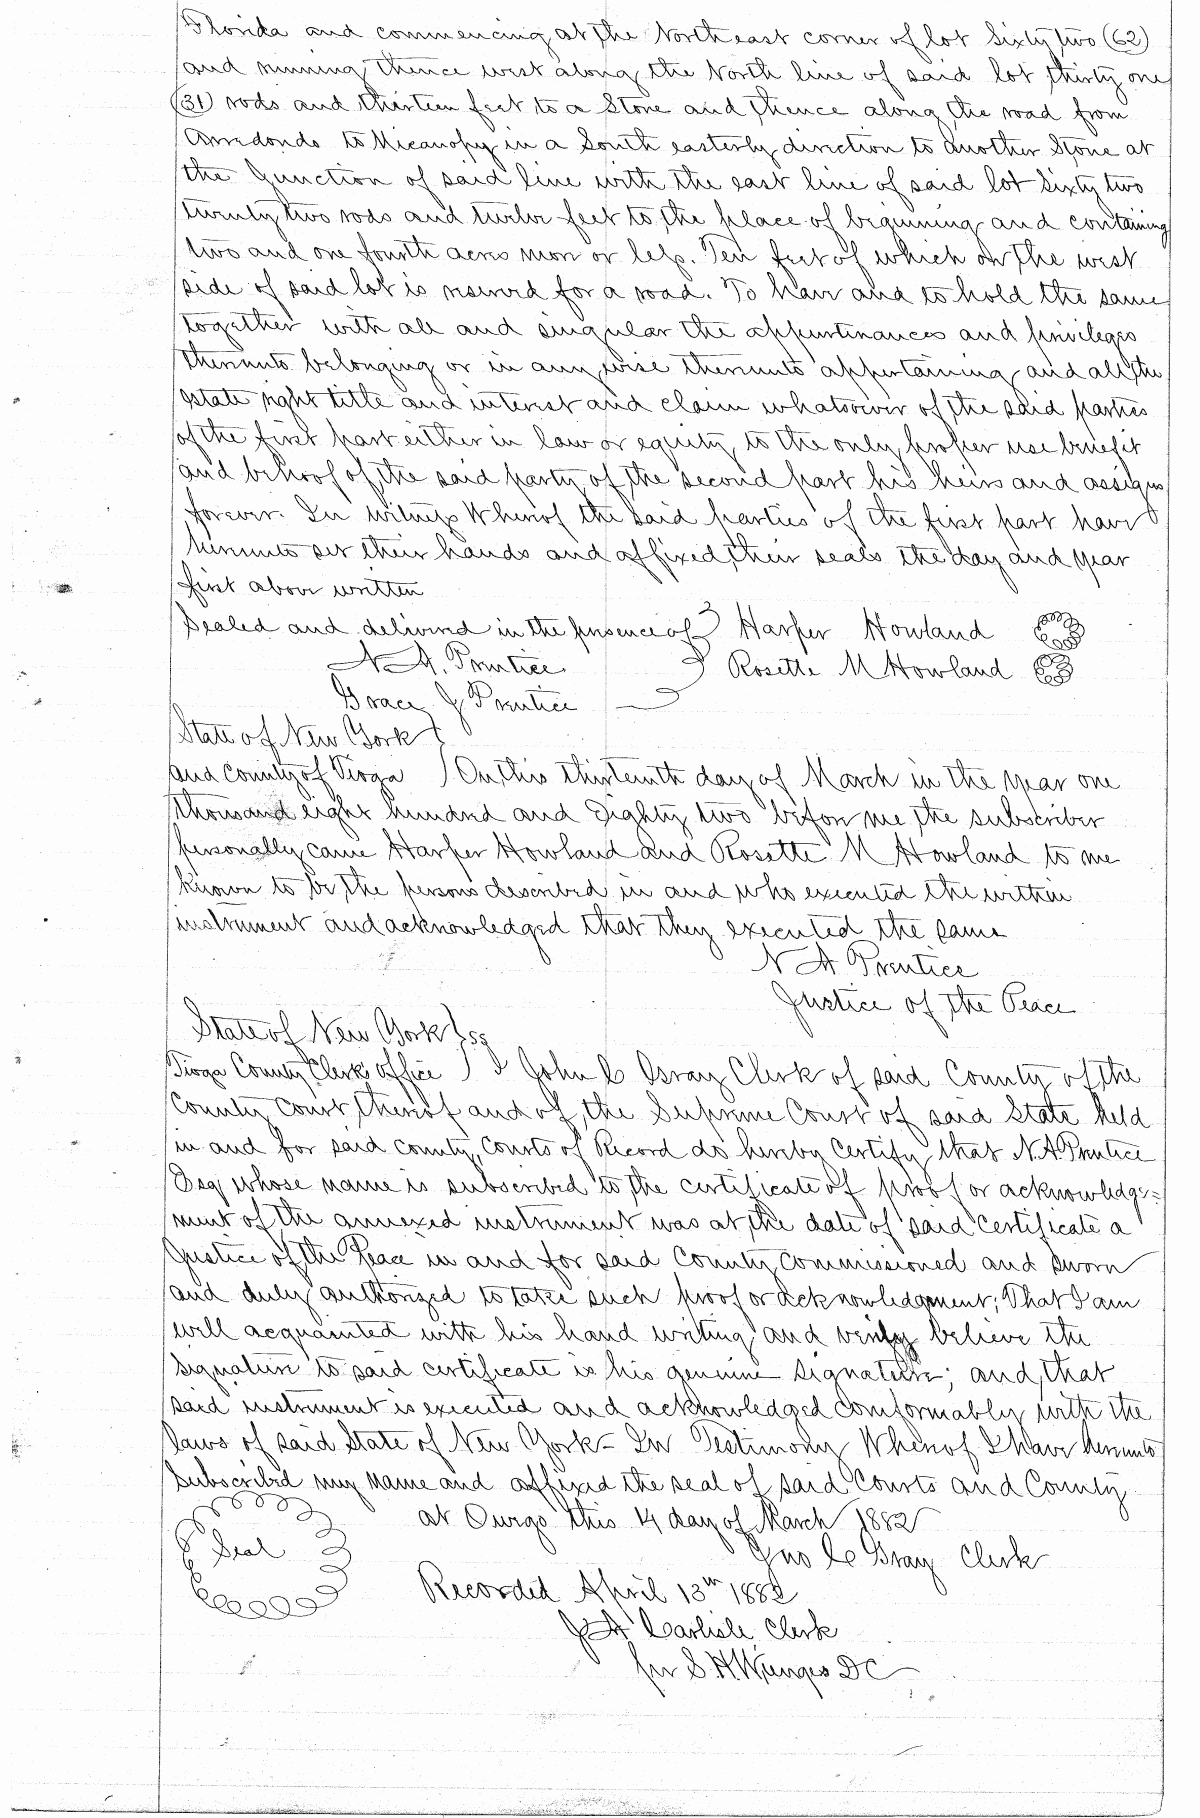 Florida and commencing at the North east corner of lot Sixty two (62)
and running thence west along the North line of said lot thirty one
(31) rods and thirteen feet to a Stone and thence along the road from
Arredondo to Micanopy in a South easterly direction to another Stone at
the Junction of said line with the east line of said lot Sixty two
twenty two rods and twelve feet to the place of beginning and containing
two and one fourth acres more or less. Ten feet of which on the west
side of said lot is reserved for a road. To have and to hold the same
together with all and singular the appurtinances and privileges
thereunto belonging or in any wise thereunto appertaining and all the
estate right title and interest and claim whatsoever of the said parties
of the first part either in law or equity to the only proper use benefit
and behoof of the said party of the second part his heirs and assigns
forever. In witness Whereof the said parties of the first part have
hereunto set their hands and affixed their seals the day and year
first above written
Sealed and delivered in the presence of } Harper Howland
N. A. Prentice } Rosette M Howland
Grace J Prentice
State of New York }
and County of Tioga } On this thirteenth day of March in the year one
thousand eight hundred and Eighty two before me the subscriber
personally came Harper Howland and Rosette M Howland to me
known to be the persons described in and who executed the within
instrument and acknowledged that they executed the same
N A Prentice
Justice of the Peace
State of New York } ss
Tioga County Clerks office } I John C Gray Clerk of said County of the
County Court thereof and of the Supreme Court of said State held
in and for said county, Courts of Record do hereby Certify that N. A. Prentice
Esq whose name is subscribed to the certificate of proof or acknowledge=
ment of the annexed instrument was at the date of said Certificate a
Justice of the Peace in and for said County Commissioned and sworn
and duly authorized to take such proof or acknowledgment; That I am
well acquainted with his hand writing and verily believe the
signature to said certificate is his genuine signature; and that
said instrument is executed and acknowledged comformably with the
laws of said State of New York - In Testimony Whereof I have hereunto
Subscribed my name and affixed the seal of said Courts and County
at Owego this 14 day of March 1882
Seal
Jno C Gray Clerk
Recorded April 13th 1882
J A Carlisle Clerk
per S. H. Wienges DC